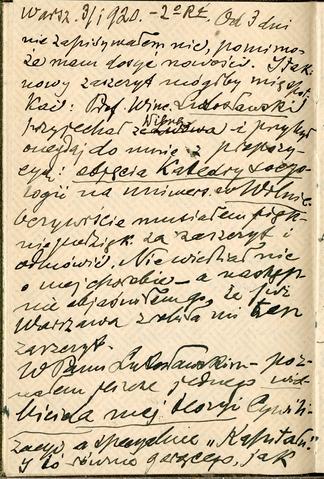 Warsz. 3/I 1920. – 2° R.
Od 3 dni
nie zapisywałem nic, pomimo
że mam dosyć nowości. I taki
nowy zaszczyt mógłby mię spot
kać: Prof. Winc. Lutosławski
przyjechał z Wilna i przybył
onegdaj do mnie z propozy-
cyą: objęcia Katedry socyo-
logii na uniwers. w Wilnie.
Oczywiście musiałem pięk-
nie podzięk. za zaszczyt i
odmówić. Nie wiedział nic
o mej chorobie – a następ
nie objaśniłem go, że już
Warszawa zrobiła mi ten
zaszczyt.
W Panu Lutosławskim – poz-
nałem jeszcze jednego wiel
biciela mej teoryi Cywili-
zacyi, a specyalnie „Kapitału"
I to równie gorącego, jak